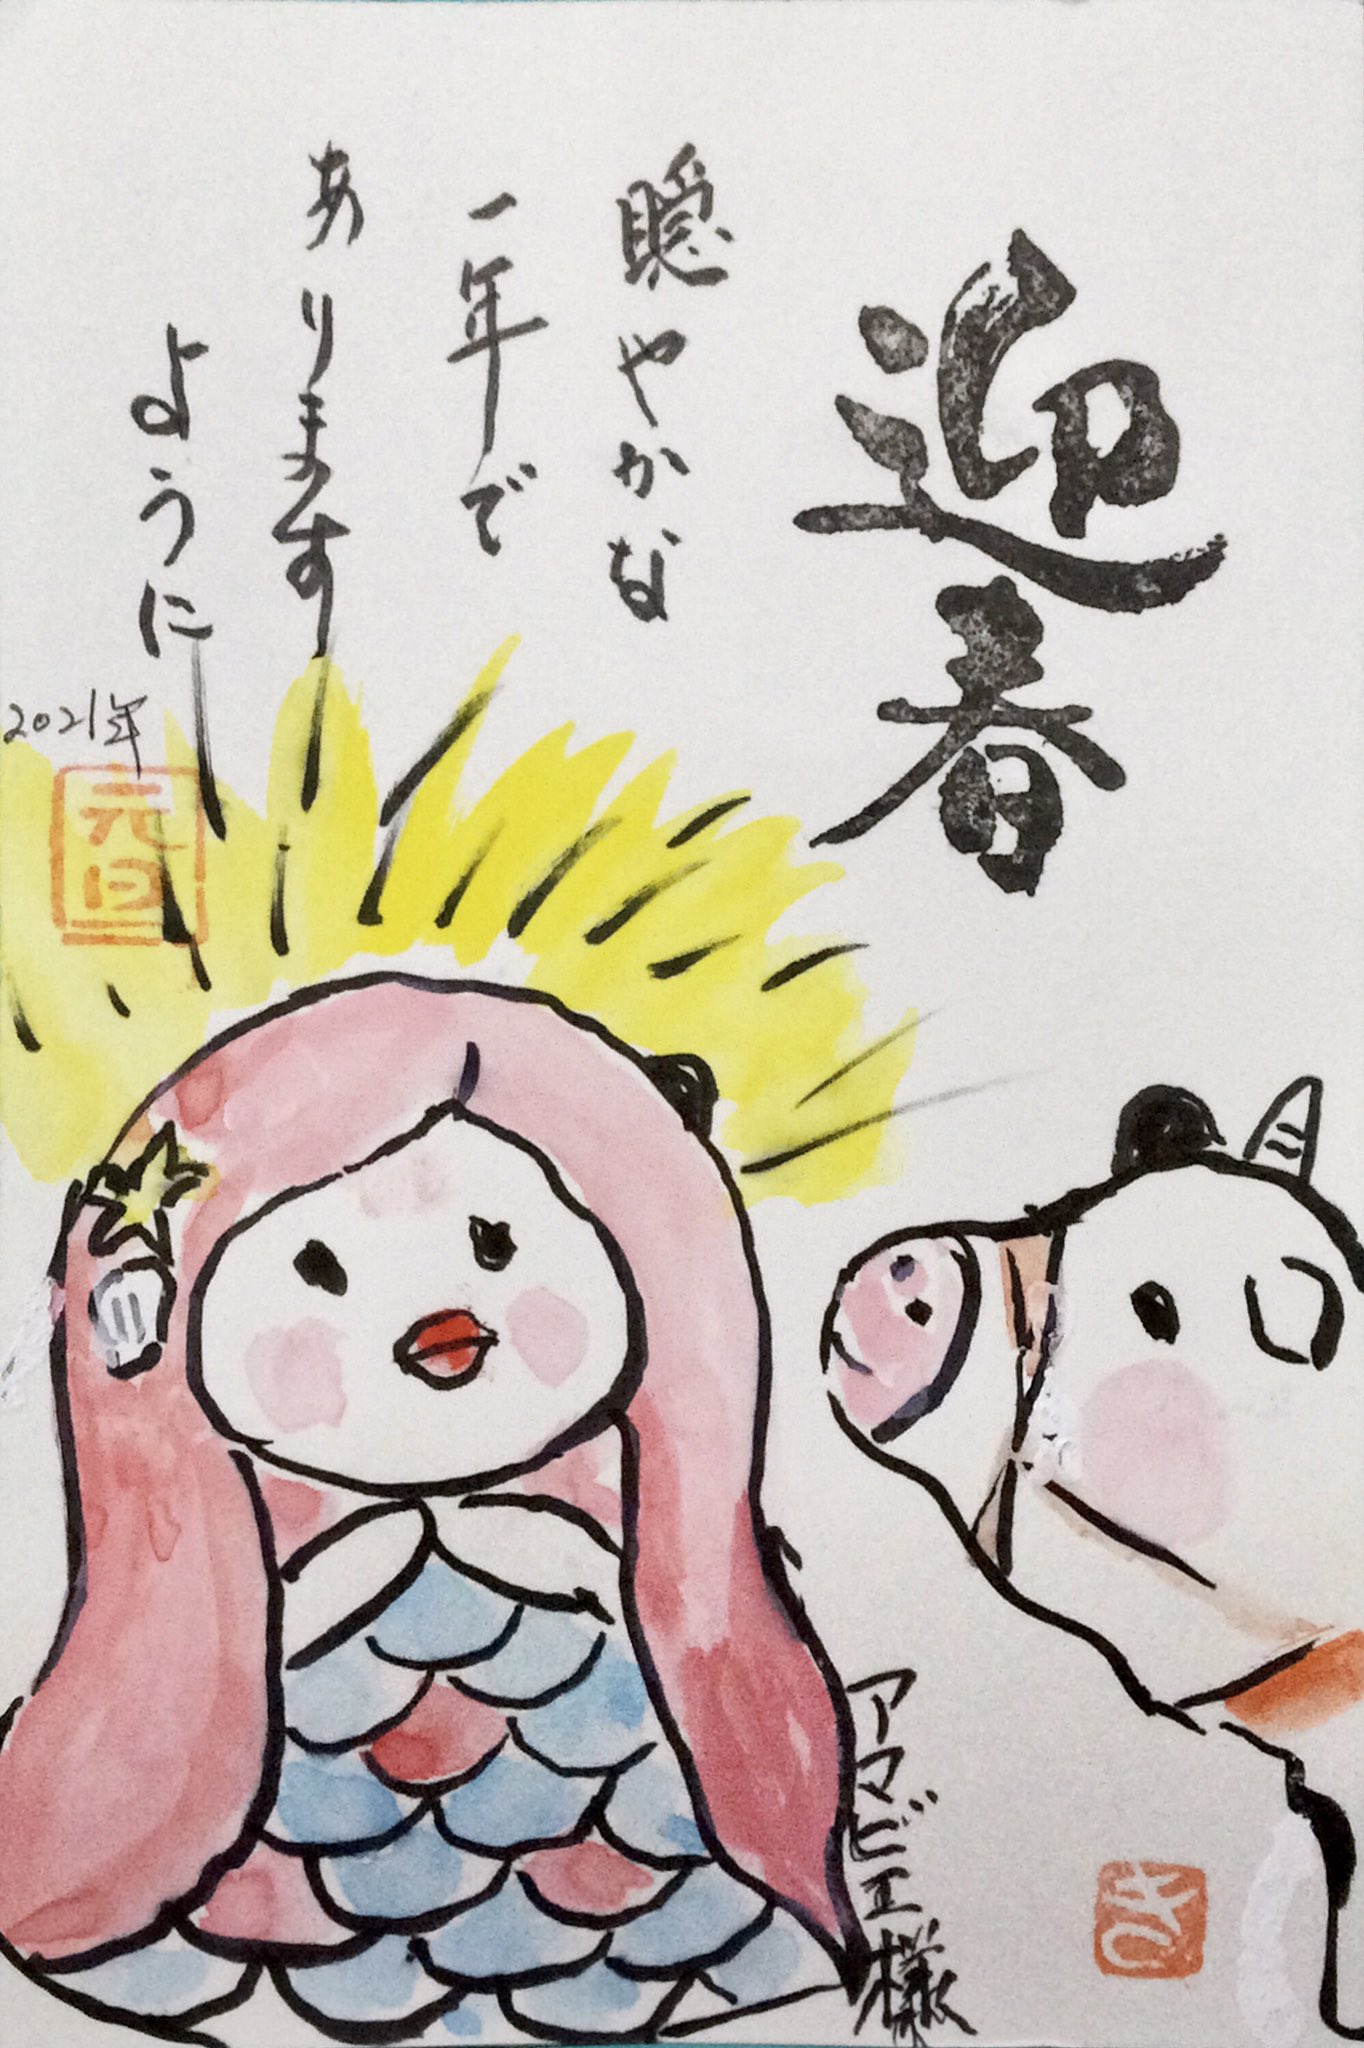 迎春
穏やかな
一年で
あります
ように
2021年
元旦
アマビエ様
き